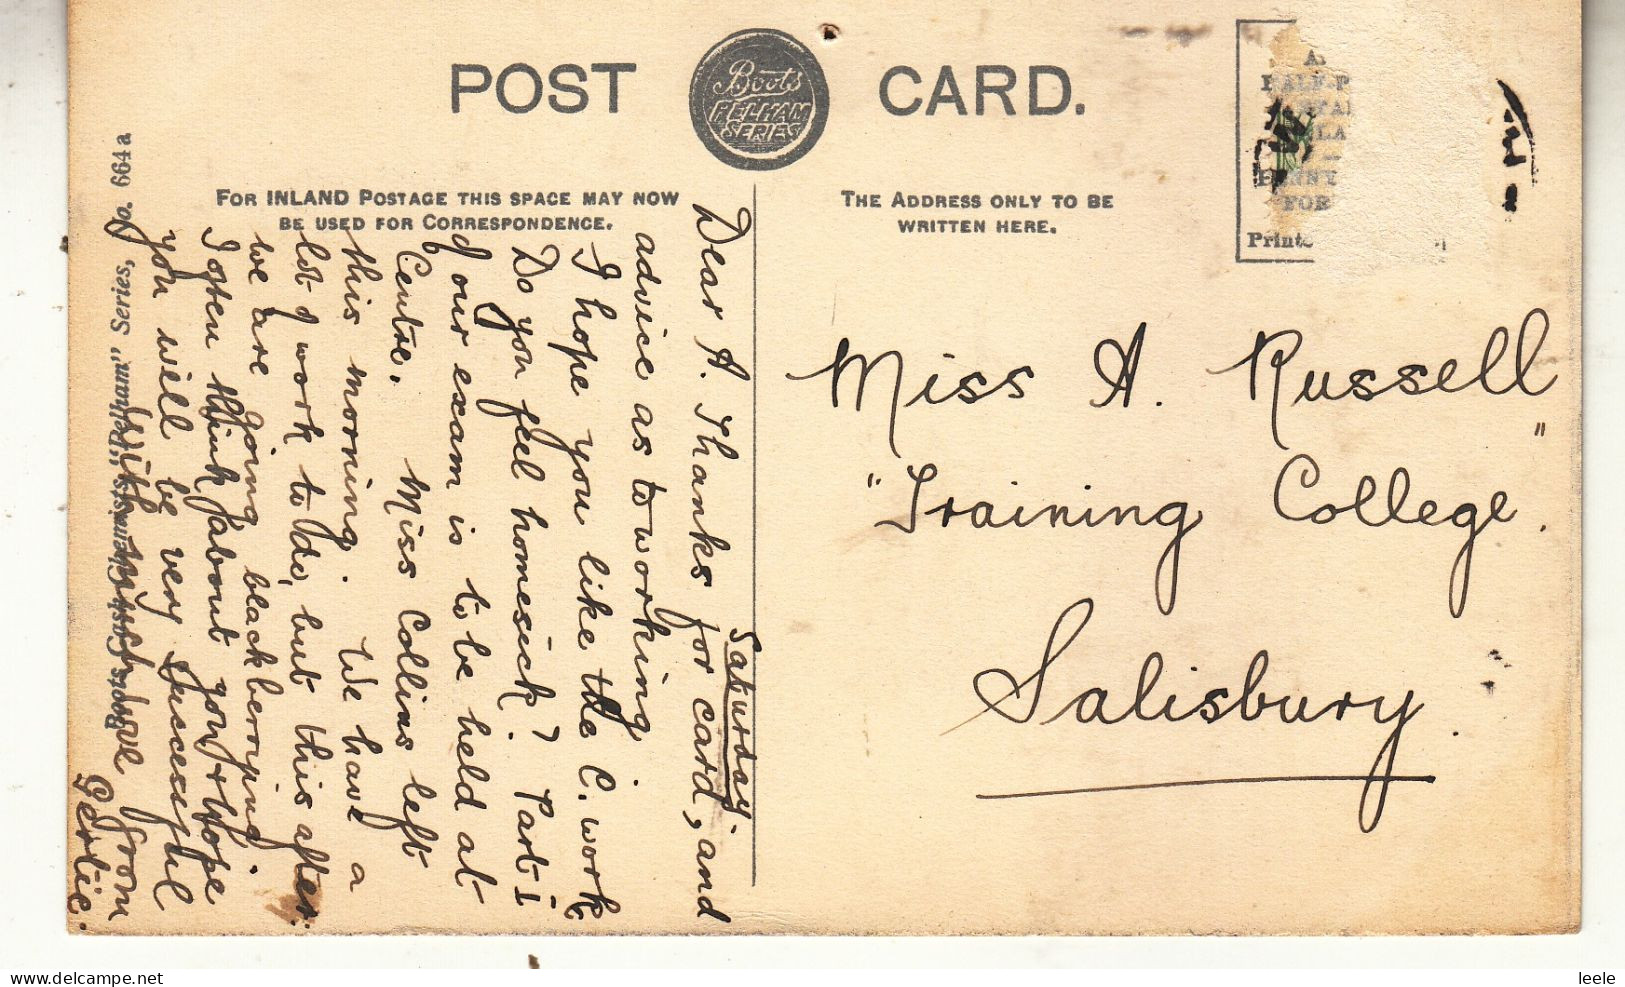 POST CARD.
Boots
PELHAM
SERIES
FOR INLAND POSTAGE THIS SPACE MAY NOW
BE USED FOR CORRESPONDENCE.
THE ADDRESS ONLY TO BE
WRITTEN HERE.
Saturday.
Dear A. Thanks for card, and
advice as to working.
I hope you like the C. work
Do you feel homesick? Part I
of our exam is to be held at
Centre. Miss Collins left
this morning. We have a
lot of work to do, but this after.
we are going blackberrying.
I often think about you & hope
you will be very successful
With much love from
Gertie.
Boots Cash Chemists "Pelham" Series, No. 664 a
Miss A. Russell
"Training College".
Salisbury.
leele
www.delcampe.net